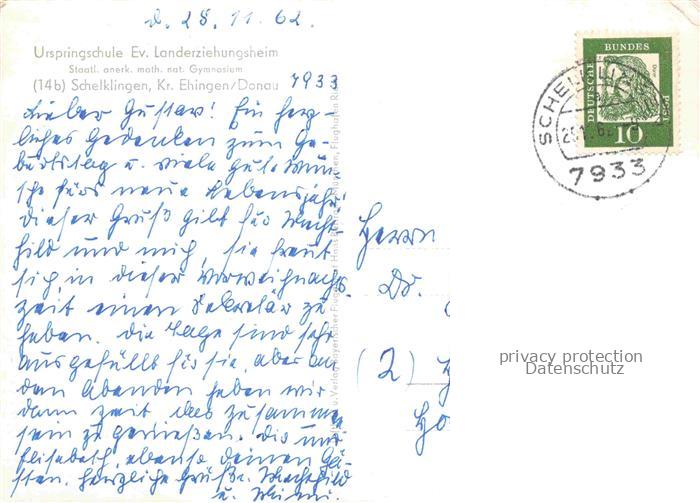 d. 28.11.62.
Urspringschule Ev. Landerziehungsheim
Staatl. anerk. math. nat. Gymnasium
(14b) Schelklingen, Kr. Ehingen/Donau 7933
Lieber Gustav! Ein herz-
liches Gedenken zum Ge-
burtstag u. viele gute Wün-
sche fürs neue Lebensjahr!
Dieser Gruß gilt für Mecht-
hild und mich, sie freut
sich, in dieser Vorweihnachts
zeit einen Sekretär zu
haben. Die Tage sind sehr
ausgefüllt für sie, aber an
den Abenden haben wir
dann Zeit das Zusammen
sein zu genießen. Dir und
Elisabeth, ebenso deinen Gä-
sten, herzliche Grüße. Mechthild
u. Mimi.
Herrn
Dr.
(2)
Ho
DEUTSCHE BUNDES POST
10
SCHELKLINGEN
7933
privacy protection
Datenschutz